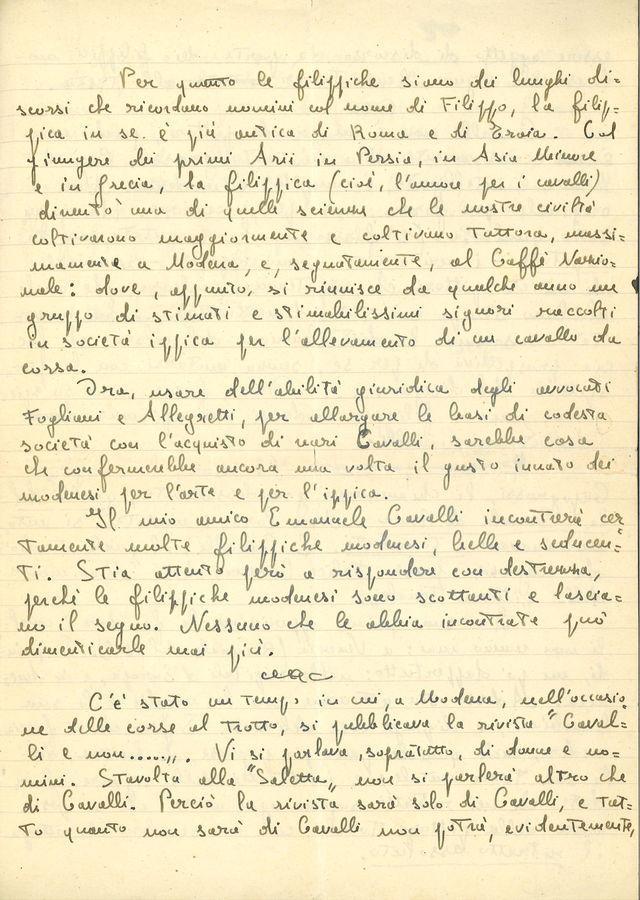 Per quanto le filippiche siano dei lunghi di=
scorsi che ricordano uomini col nome di Filippo, la filip=
pica in se è più antica di Roma e di Eroia. Col
giungere dei primi Arii in Persia, in Asia Minore
e in Grecia, la filippica (cioè, l'amore per i cavalli)
diventò una di quelle scienze che le nostre civiltà
coltivarono maggiormente e coltivano tuttora, massi=
mamente a Modena, e, segnatamente, al Caffè Nazio=
nale: dove, appunto, si riunisce da qualche anno un
gruppo di stimati e stimabilissimi signori raccolti
in società ippica per l'allevamento di un cavallo da
corsa.
Ora, usare dell'abilità giuridica degli avvocati
Fogliani e Allegretti, per allargare le basi di codesta
società con l'acquisto di vari Cavalli, sarebbe cosa
che confermerebbe ancora una volta il gusto innato dei
modenesi per l'arte e per l'ippica.
Il mio amico Emanuele Cavalli incontrerà cer=
tamente molte filippiche modenesi, belle e seducen=
ti. Stia attento però a rispondere con destrezza,
perchè le filippiche modenesi sono scottanti e lascia=
no il segno. Nessuno che le abbia incontrate può
dimenticarle mai più.
C'è stato un tempo in cui, a Modena, nell'occasio
ne delle corse al trotto, si pubblicava la rivista "Caval=
li e non.....„. Vi si parlava, sopratutto, di donne e uo=
mini. Stavolta alla "Saletta„ non si parlerà altro che
di Cavalli. Perciò la rivista sarà solo di Cavalli, e tut=
to quanto non sarà di Cavalli non potrà, evidentemente,